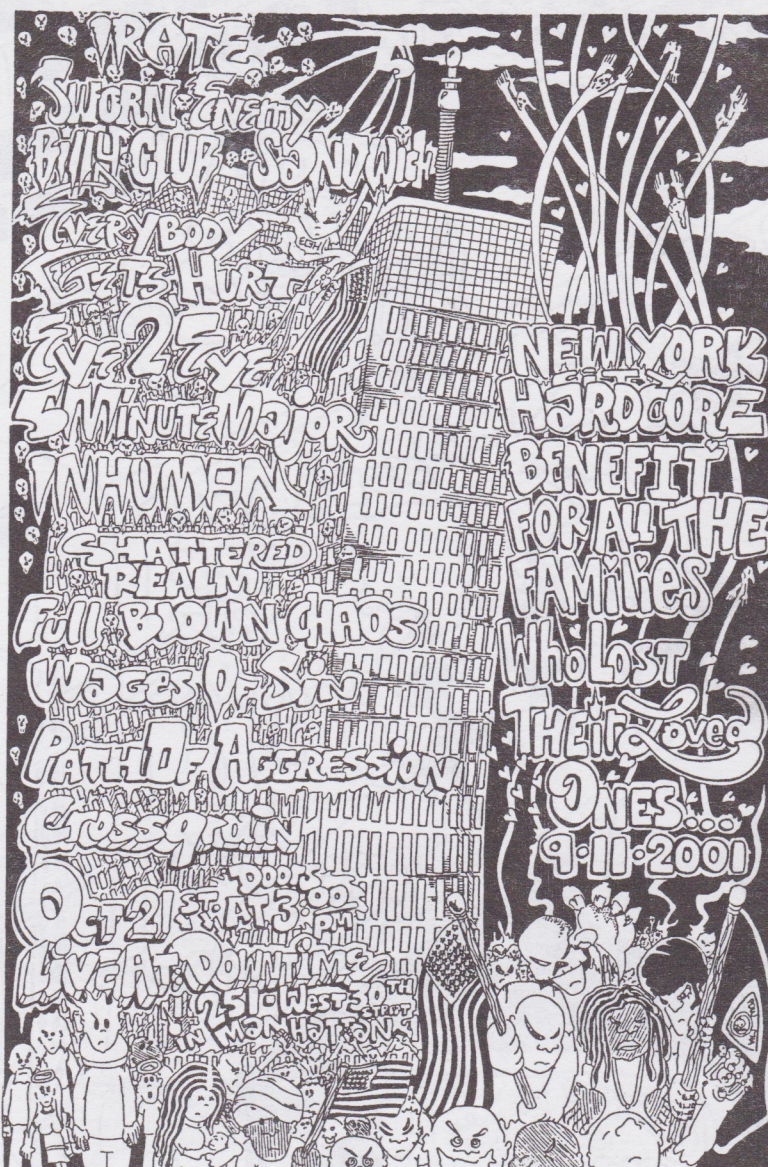 IRATE
SWORN ENEMY
BILLY CLUB SANDWICH
EVERYBODY
GETS HURT
EGH
EYE 2 EYE
5 MINUTE MAJOR
INHUMAN
SHATTERED
REALM
FULL BLOWN CHAOS
WAGES OF SIN
PATH OF AGGRESSION
CROSSGRAIN
OCT 21ST. DOORS
AT 3:00
PM
LIVE AT DOWNTIME
251 WEST 30TH
STREET
IN MANHATTAN
NEW YORK
HARDCORE
BENEFIT
FOR ALL THE
FAMILIES
WHO LOST
THEIR LOVED
ONES...
9·11·2001